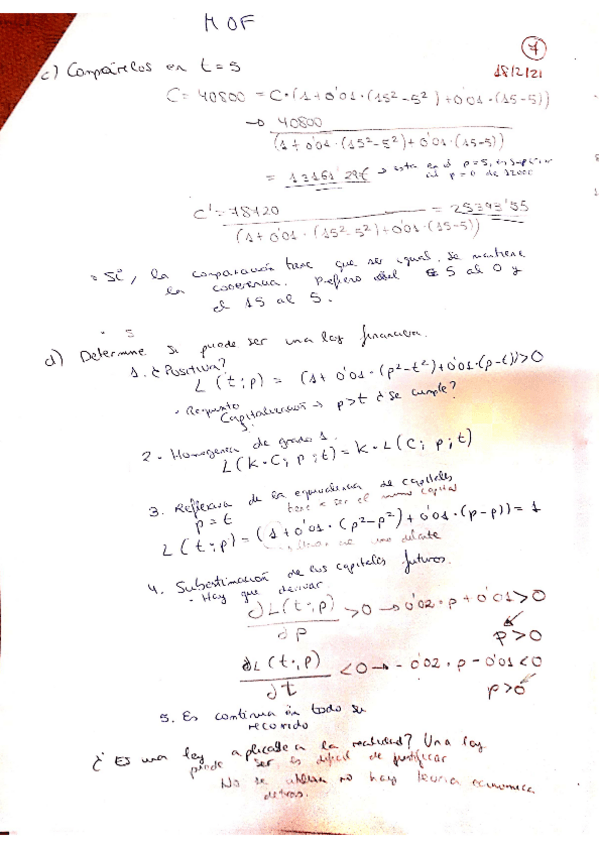 MOF
7
18/2/21
c) Compárelos en t = 5
C = 40800 = C·(1+0'01·(15²-5²)+0'01·(15-5))
→ 40800
(1+0'01·(15²-5²)+0'01·(15-5))
= 13161'29€ → esta en el p=5, es superior
al p=0 de 12000
C' = 78720 = 25393'55
(1+0'01·(15²-5²)+0'01·(15-5))
Sí, la comparación tiene que ser igual, se mantiene
la coherencia. Prefiero el 5 al 0 y
el 15 al 5.
d) Determine si puede ser una ley financiera.
1. ¿Positiva?
L(t;p) = (1+0'01·(p²-t²)+0'01·(p-t))>0
Requisito
Capitalización → p>t ¿se cumple?
2- Homogenea de grado 1.
L(k·C; p; t) = k·L(C; p; t)
3. Reflexiva de la equivalencia de capitales
p=t tiene q ser el mismo capital
L(t;p) = (1+0'01·(p²-p²)+0'01·(p-p)) = 1
uno delante
4. Subestimación de los capitales futuros.
- Hay que derivar
∂L(t;p) >0 → 0'02·p+0'01>0
∂p
p>0
∂L(t;p) <0 → -0'02·p-0'01<0
∂t
p>0
5. Es continua en todo su
recorrido
¿Es una ley aplicable a la realidad? Una ley
puede ser es difícil de justificar
No se utiliza no hay teoría económica
detrás.